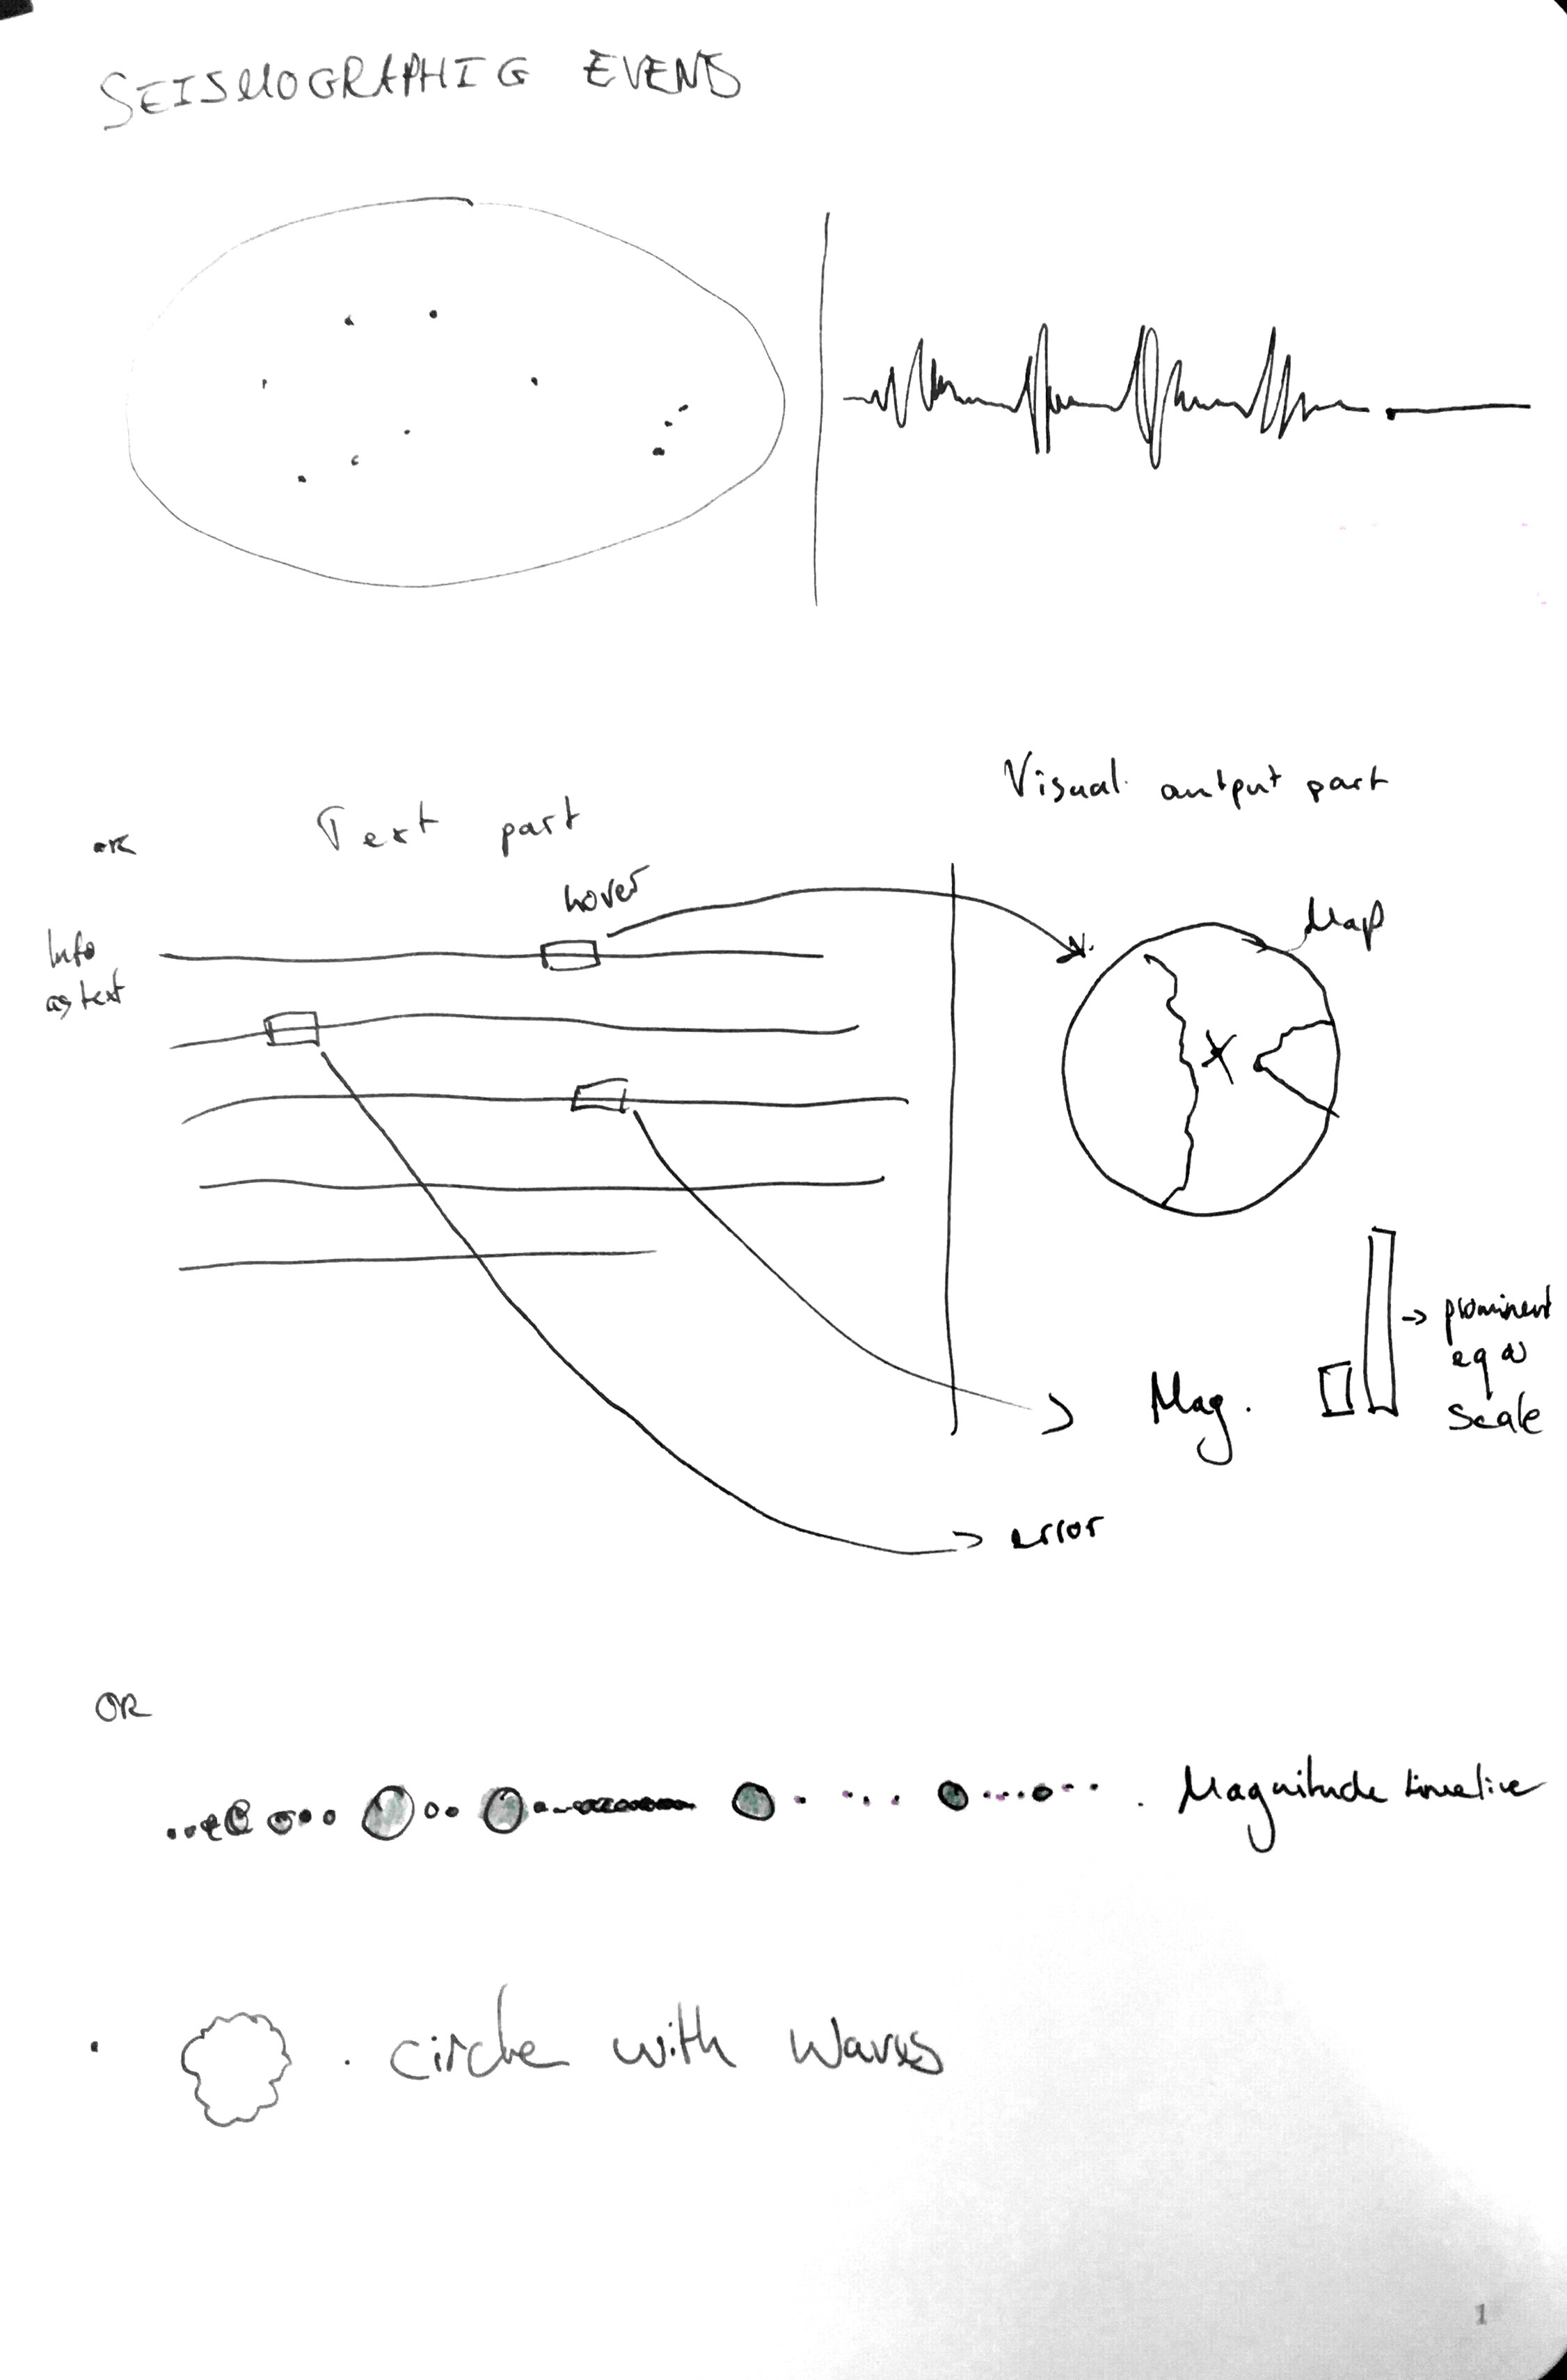 SEISMOGRAPHIC EVENTS
Visual output part
OR
Text part
hover
Info
as text
Map
prominent
eq as
scale
Mag.
error
OR
Magnitude timeline
circle with waves
1